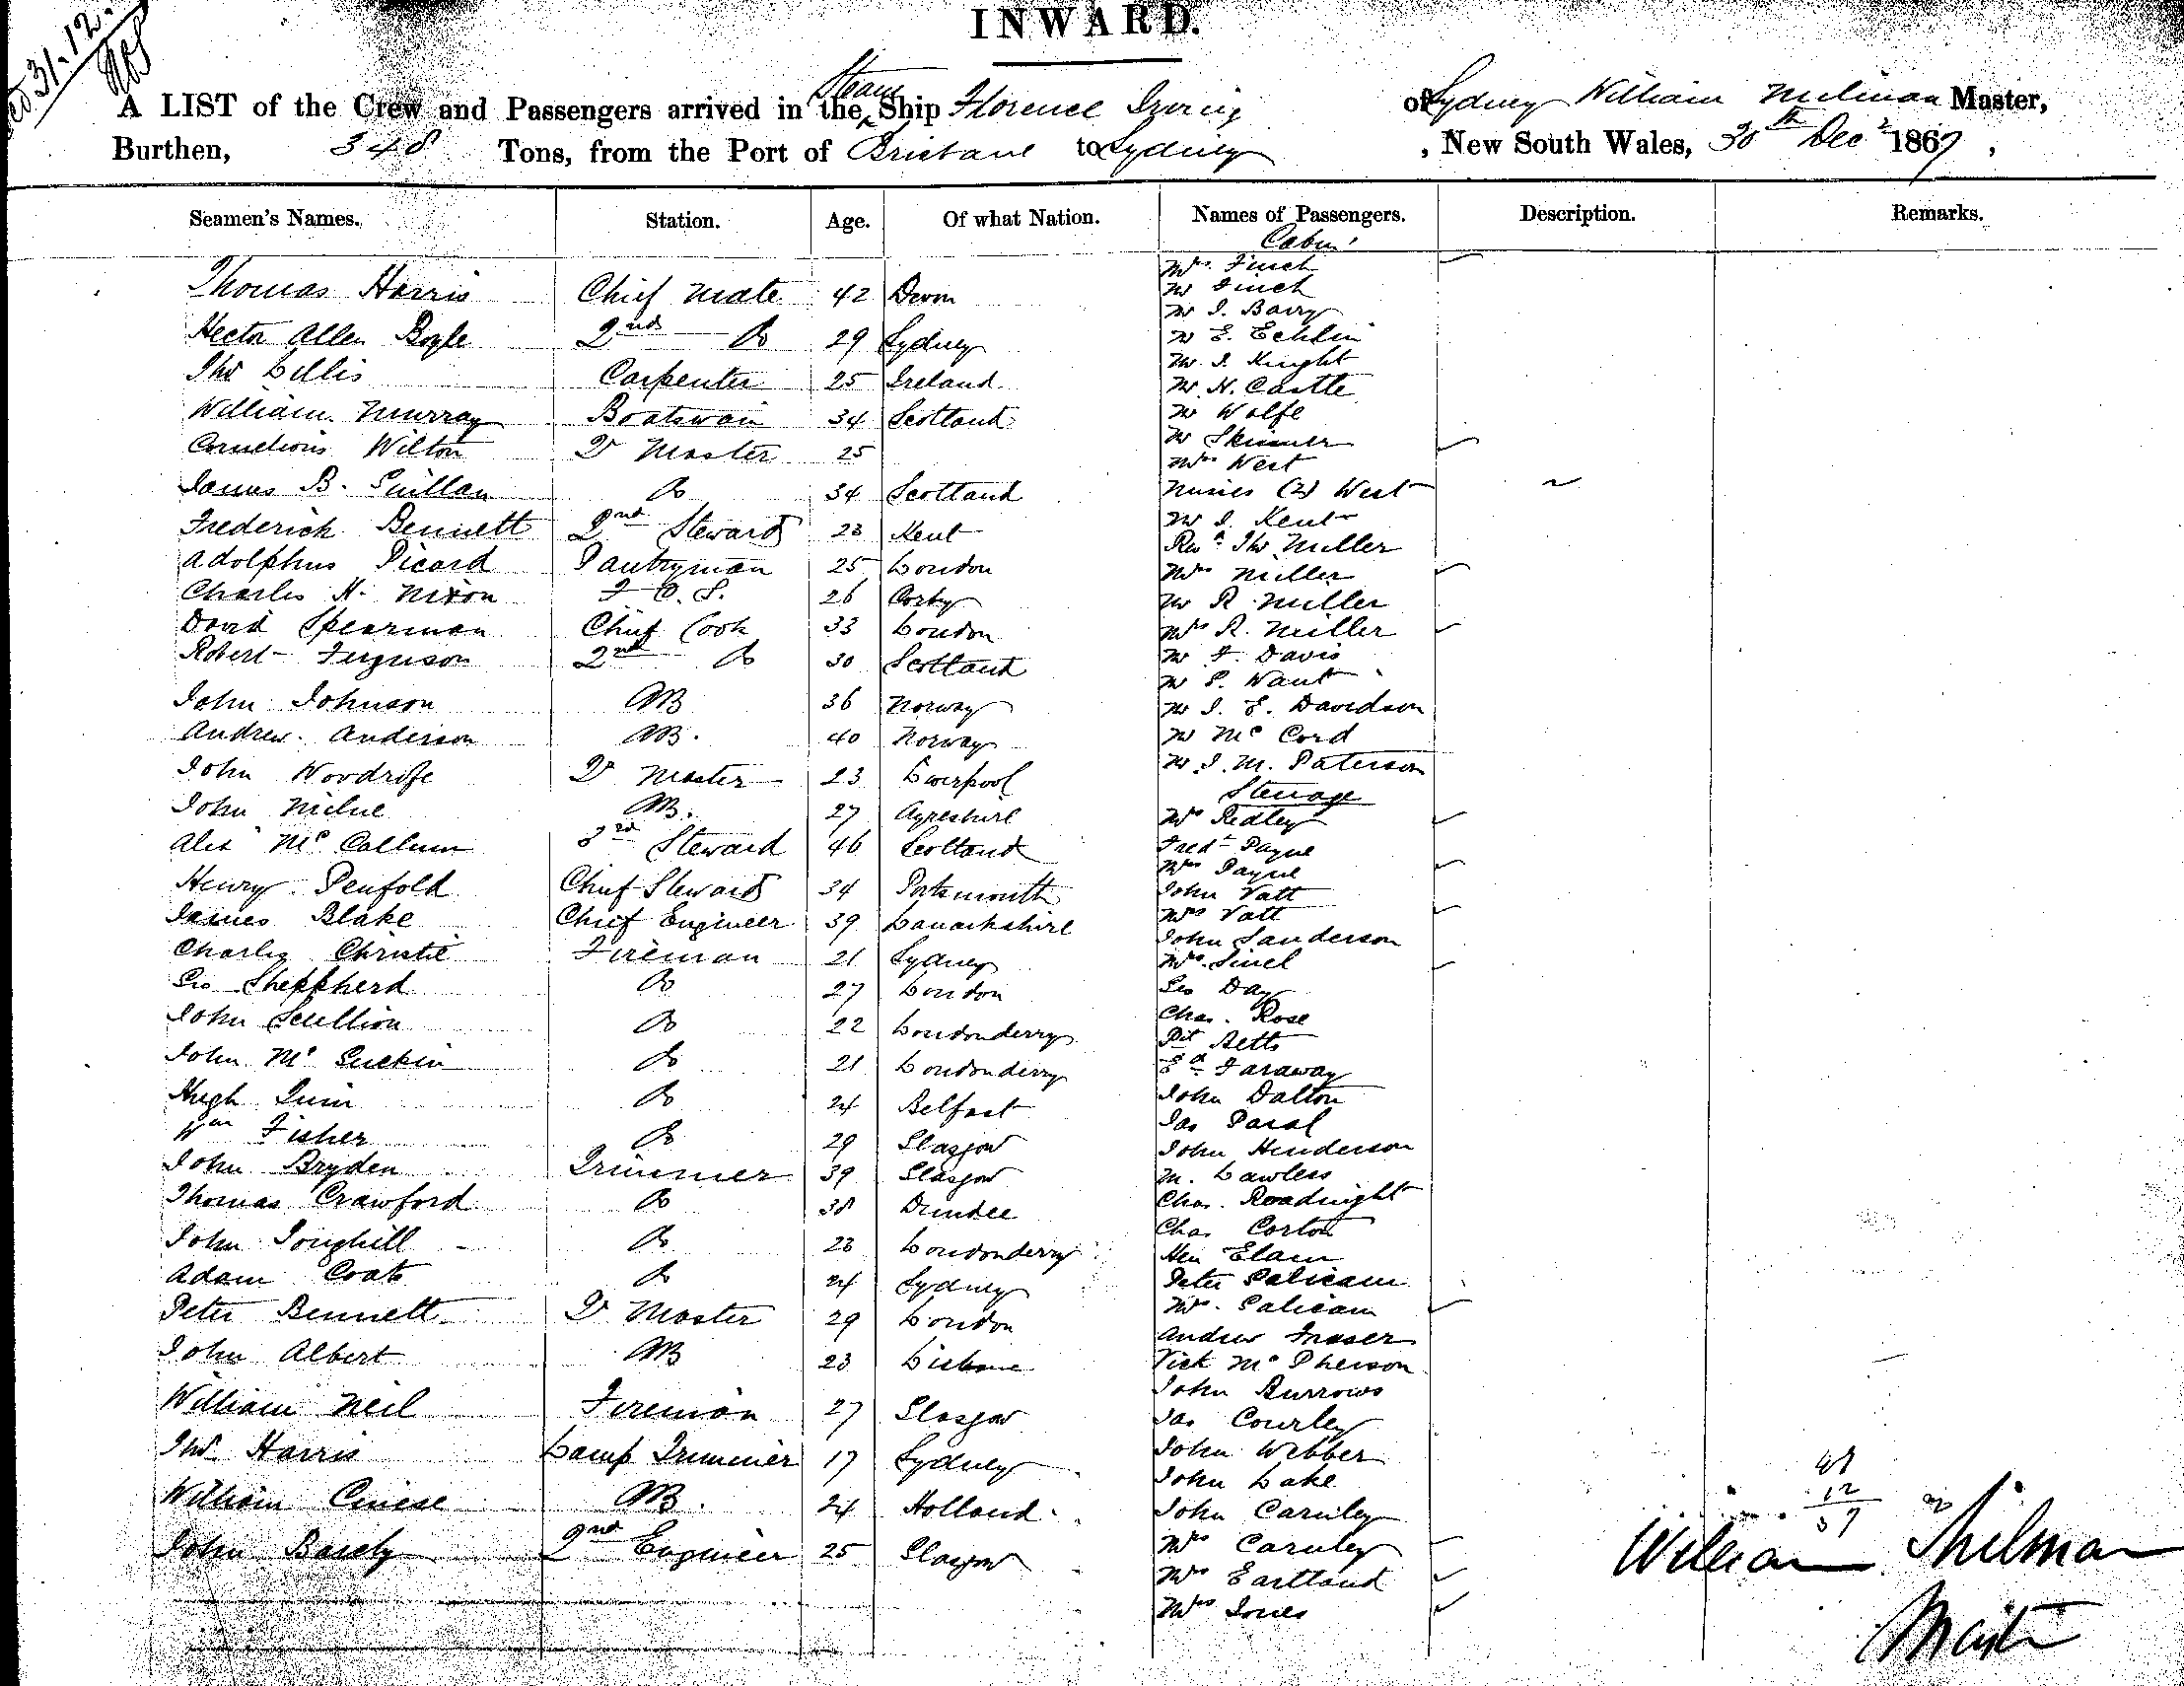 31.12.
INWARD.
A LIST of the Crew and Passengers arrived in the Steam Ship Florence Irving of Sydney William Milman Master,
Burthen, 348 Tons, from the Port of Brisbane to Sydney, New South Wales, 30th Decr 1867,
Seamen's Names. Station. Age. Of what Nation. Names of Passengers. Description. Remarks.
Cabin
Thomas Harris Chief Mate 42 Devon
Hector Allen Boyle 2nd Do 29 Sydney
Thos Lillis Carpenter 25 Ireland
William Murray Boatswain 34 Scotland
Cornelious Wilton Q Master 25
James B. Do 34 Scotland
Frederick Bennett 2nd Steward 23 Kent
Adolphus Picard Pantryman 25 London
Charles H. Nixon F. C. S. 26 Corby
David Spearman Chief Cook 33 London
Robert Ferguson 2nd Do 30 Scotland
John Johnson AB 36 Norway
Andrew Anderson AB. 40 Norway
John Woodrife Q Master 23 Liverpool
John Milne AB. 27 Ayreshire
Alex McCallum 3rd Steward 46 Scotland
Henry Penfold Chief Steward 34 Portsmouth
James Blake Chief Engineer 39 Lanarkshire
Charles Christie Fireman 21 Sydney
Geo Shepherd Do 27 London
John Scullion Do 22 Londonderry
John Mc Do 21 Londonderry
Hugh Quin Do 24 Belfast
Wm Fisher Do 29 Glasgow
John Bryden Trimmer 39 Glasgow
Thomas Crawford Do 38 Dundee
John Toughill Do 23 Londonderry
Adam Coats Do 24 Sydney
Peter Bennett Q Master 29 London
John Albert AB 23 Lisbone
William Neil Fireman 27 Glasgow
Thos Harris Lamp Trimmer 17 Sydney
William AB. 24 Holland
John 2nd Engineer 25 Glasgow
Mrs. Finch
Mr Finch
Mr J. Barry
Mr E. Echlin
Mr. J. Knight
Mr. H. Castle
Mr Wolfe
Mr Skinner
Mrs West
Misses (2) West
Mr J. Kent
Revd Thos Miller
Mrs Miller
Mr R. Miller
Mrs R. Miller
Mr F. Davis
Mr S. Want
Mr J. E. Davidson
Mr McCord
Mr J. M. Paterson
Steerage
Mrs Ridley
Fredk Payne
Mrs Payne
John Vatt
Mrs Vatt
John Sanderson
Mrs.
Geo Day
Chas. Rose
Betts
Ed Faraway
John Dalton
Jas
John Henderson
M. Lawless
Chas. Roadnight
Chas Corton
Hen Elam
Peter Salicam
Mrs. Salicam
Andrew Fraser
McPherson
John Burrows
Jas Courley
John Webber
John Lake
John Caruley
Mrs Caruley
Mrs Eastland
Mrs Jones
William Milman
Master